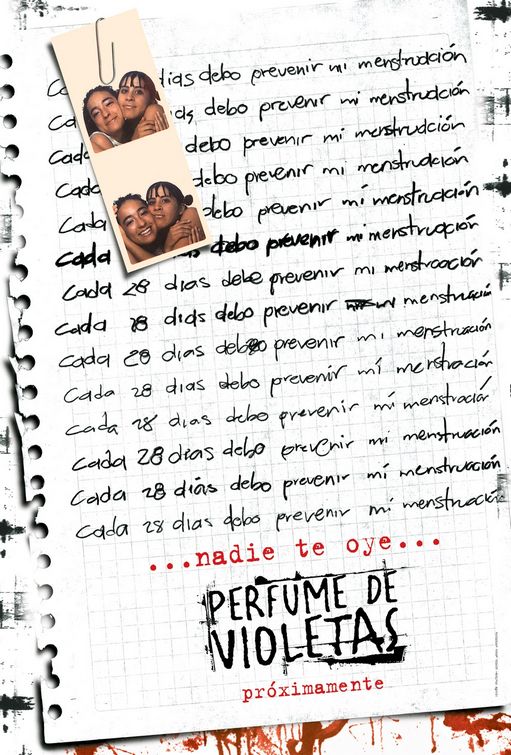 días debo prevenir mi menstruación
debo prevenir mi menstruación
Cada debo prevenir mi menstruación
Cada debo prevenir mi menstruación
Cada debo prevenir mi menstruación
Cada días debo prevenir mi menstruación
Cada 28 dias debe prevenir mi menstroación
Cada 28 dias debo prevenir mi menstruación
Cada 28 dias debo prevenir mi menstruación
Cada 28 dias debo prevenir mí menstración
Cada 28 dias debo prevenir mí menstración
Cada 28 dias debo prevenir mi menstruación
Cada 28 diás debo prevenir mí menstruación
Cada 28 dias debo prevenir mi menstruación
...nadie te oye...
PERFUME DE
VIOLETAS
próximamente